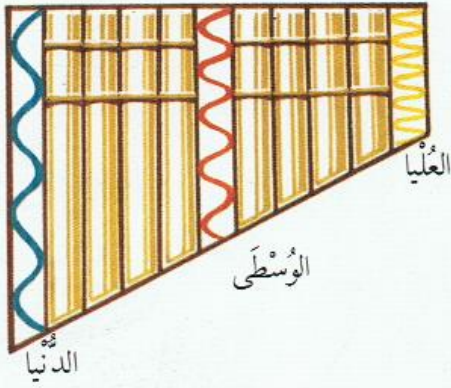 العُلْيا
الوُسْطَى
الدُّنْيا